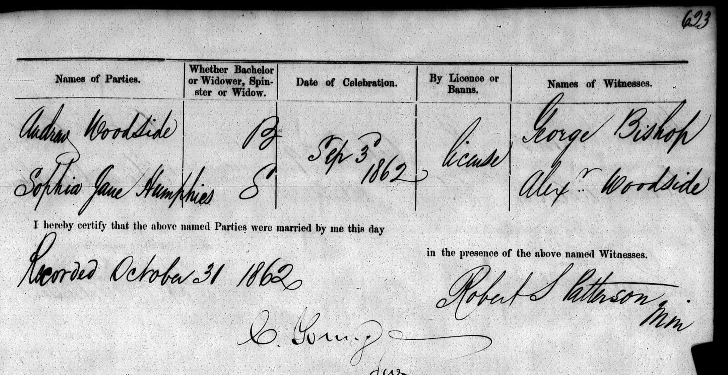 623
Names of Parties. Whether Bachelor or Widower, Spinster or Widow. Date of Celebration. By Licence or Banns. Names of Witnesses.
Andrew Woodside B Sep 3d 1862 license George Bishop
Sophia Jane Humphies S Alexr Woodside
I hereby certify that the above named Parties were married by me this day
in the presence of the above named Witnesses.
Recorded October 31 1862
Robert S Patterson Min
C. Young